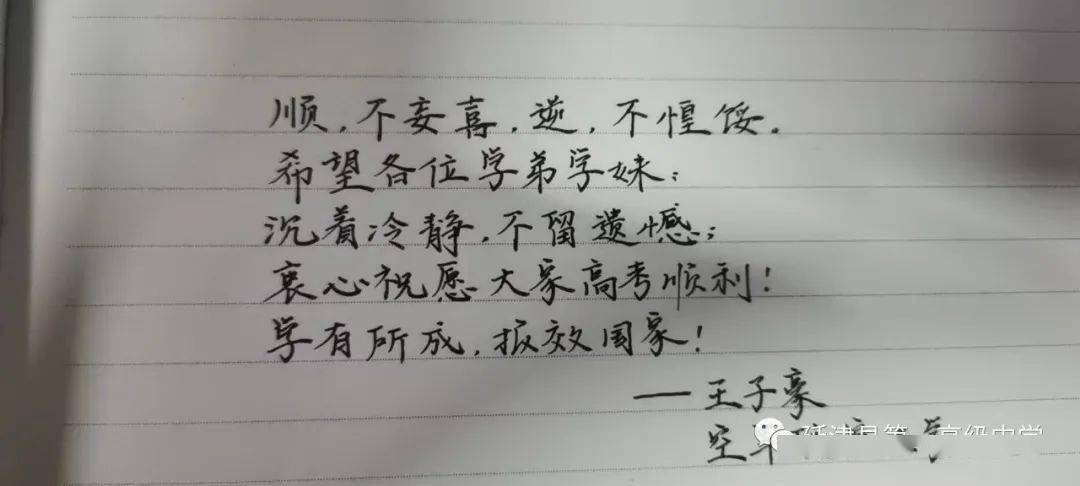 顺，不妄喜，逆，不惶馁。
希望各位学弟学妹：
沉着冷静，不留遗憾；
衷心祝愿大家高考顺利！
学有所成，报效国家！
——王子豪
空军
延津县第一高级中学